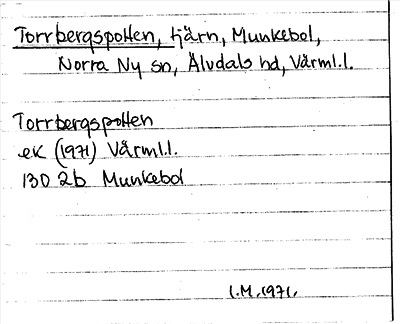 Torrbergspotten, tjärn, Munkebol,
Norra Ny sn, Älvdals hd, Värml.l.
Torrbergspotten
ek (1971) Värml.l.
130 2b Munkebol
I.M. 1971.